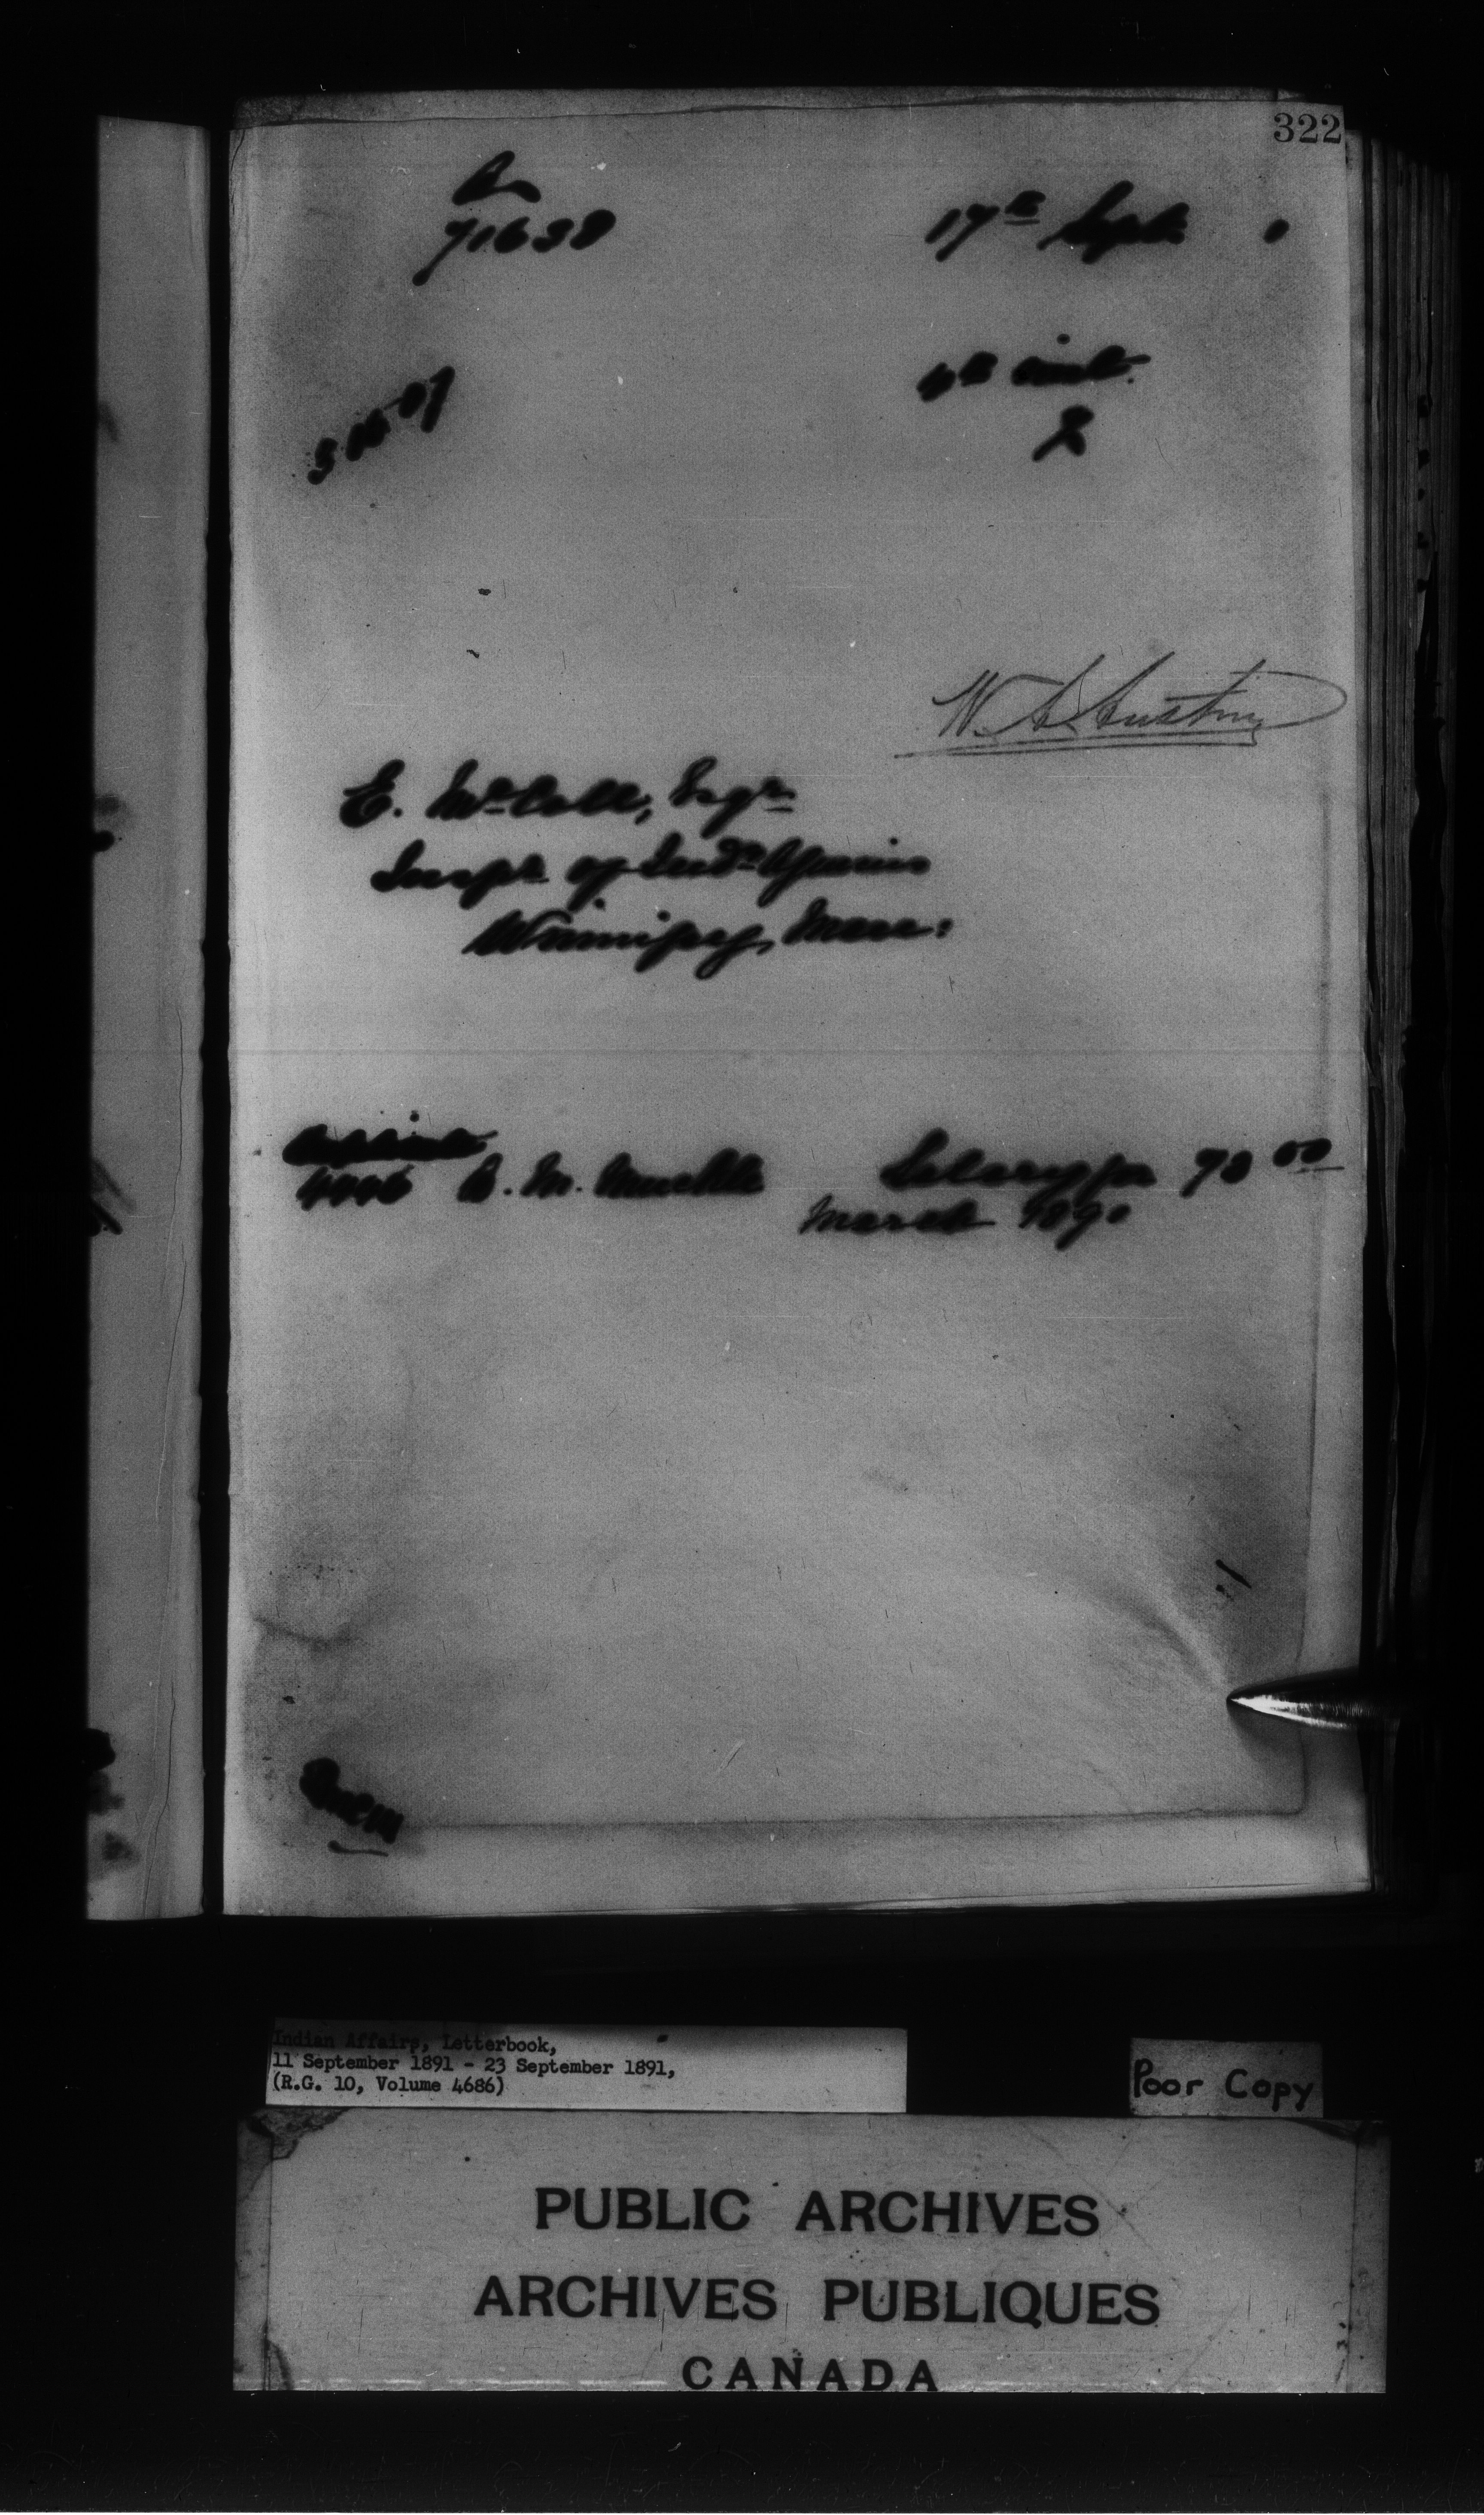 322
71638
17th Sept.
4th inst.
W. A. Austin
E. McColl, Esqr
Inspr of Indn Agencies
Winnipeg, Man:
A. M. Muckle Salary for 78 00
March 1890
Indian Affairs, Letterbook,
11 September 1891 - 23 September 1891,
(R.G. 10, Volume 4686)
Poor Copy
PUBLIC ARCHIVES
ARCHIVES PUBLIQUES
CANADA